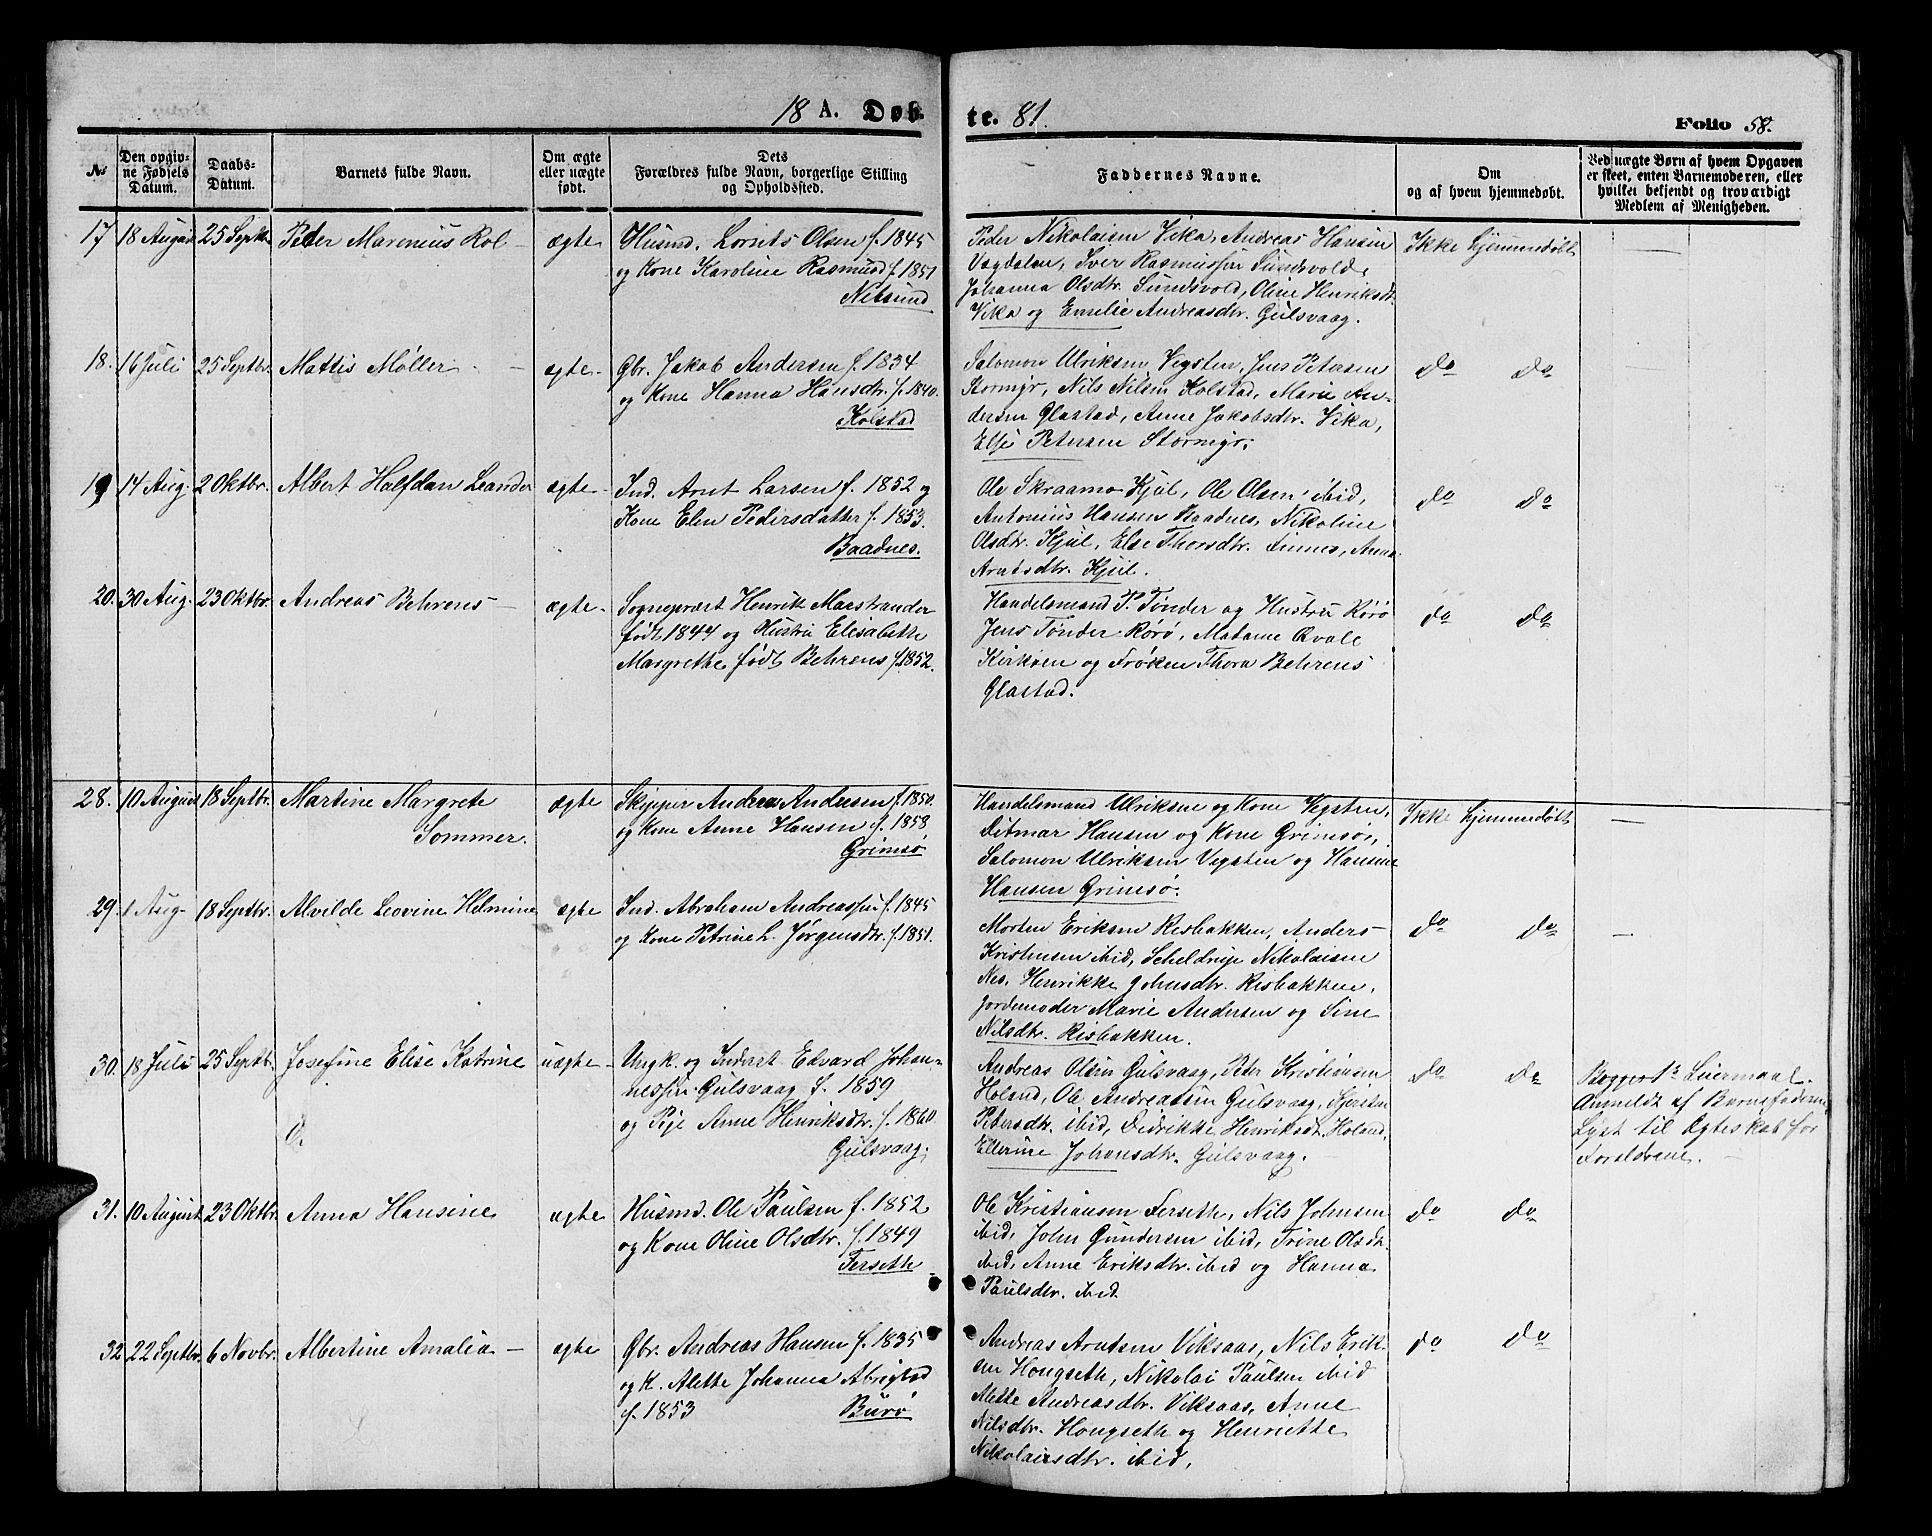 18 A. Døb-
te. 81.
Folio 58.
№
Den opgiv-
ne Fødsels
Datum.
Daabs-
Datum.
Barnets fulde Navn.
Om ægte
eller uægte
født.
Dets
Forældres fulde Navn, borgerlige Stilling
og Opholdssted.
Faddernes Navne.
Om
og af hvem hjemmedøbt.
Ved uægte Børn af hvem Opgaven
er skeet, enten Barnemoderen, eller
hvilket bekjendt og troværdigt
Medlem af Menigheden.
17 18 August 25 Septbr. Peder Marenius Rol - ægte
Husmd. Lorents Olsen f. 1845
og Kone Karoline Rasmusd f. 1851
Peder Nikolaisen Vika, Andreas Hansen
Vagdalen, Iver Rasmussen Sundsvold,
Johanna Olsdtr. Sundsvold, Oline Henriksdt.
Vika og Emelie Andreasdtr. Gulsvaag.
Ikke hjemmedøbt —
18. 16 Juli 25 Septbr. Mattis Møller - ægte -
Gbr. Jakob Andersen f. 1834
og Kone Hanna Hansdtr. f. 1840.
Kolstad
Salomon Ulriksen Vegsten, Jens Petersen
Stormyr, Nils Nilsen Kolstad, Marie An-
dersen Glastad, Anne Jakobsdtr. Vika,
Else Petersen Stormyr.
do do
19 14 Aug. 2 Oktbr. Albert Halfdan Leander ægte -
Ind. Arnt Larsen f. 1852 og
Kone Elen Pedersdatter f. 1853.
Baadnes.
Ole Skraamo Kjul, Ole Olsen ibid,
Antonius Hansen Baadnes, Nikoline
Olsdtr. Kjul, Else Thorsdtr. Finnes, Anna
Arntsdtr. Kjul.
do do
20. 30 Aug. 23 Oktbr. Andreas Behrens - ægte -
Sogneprest Henrik Marstrander
født 1844 og Hustru Elisabeth
Margrethe født Behrens f. 1852.
Handelsmand P. Tønder og Hustru Rørø
Jens Tønder Rørø, Madame Qvale
Kirkøen og Frøken Thora Behrens
Glastad.
do do
28. 10 August 18 Septbr. Martine Margrete
Sommer.
ægte
Skipper Anders Andersen f. 1850.
og Kone Anne Hansen f. 1858
Grimsø
Handelsmand Ulriksen og Kone Vegsten,
Ditmar Hansen og Kone Grimsø,
Salomon Ulriksen Vegsten og Hansine
Hansen Grimsø.
Ikke hjemmedøbt —
29. 1 Aug. 18 Septbr. Alvilde Leovine Helmine ægte
Ind. Abraham Andreassen f. 1845
og Kone Petrine L. Jørgensdtr. f. 1851.
Morten Eriksen Risbakken, Anders
Kristensen ibid, Scheldrup Nikolaisen
Nes, Henrikke Johnsdtr. Risbakken,
Jordemoder Marie Andersen og Sine
Nilsdtr. Risbakken.
do do —
30. 18 Juli 25 Septbr. Josefine Elise Katrine uægte -
Ungk. og Inderst Edvard Johan-
nessen Gulsvaag f. 1859
og Pige Anne Henriksdtr. f. 1860
Gulsvaag.
Andreas Olsen Gulsvaag, Peder Kristiansen
Holand, Ole Andreassen Gulsvaag, Kjersten
Pedersdtr. ibid, Didrikke Henriksdt. Holand,
Ellerine Johansdtr. Gulsvaag.
do do
Begges 1ste Leiermaal.
Anmeldt af Barnefaderen.
Lyst til Ægteskab for
Forældrene. —
31. 10 August 23 Oktbr. Anna Hansine ægte
Husmd. Ole Paulsen f. 1852
og Kone Oline Olsdtr. f. 1849
Ferseth
Ole Kristiansen Ferseth, Nils Johnsen
ibid, John Gundersen ibid, Trine Olsdt.
ibid, Anne Eriksdtr. ibid og Hanna
Paulsdtr. ibid
do do
32 22 Septbr. 6 Novbr. Albertine Amalia - ægte
Gbr. Andreas Hansen f. 1835
og K. Alette Johanna Abrigtsd
f. 1853 Burø
Andreas Arntsen Viksaas, Nils Erik-
sen Hongseth, Nikolai Paulsen ibid
Mette Andreasdtr. Viksaas, Anne
Nilsdtr. Hongseth og Henriette
Nikolaisdtr. ibid.
do do